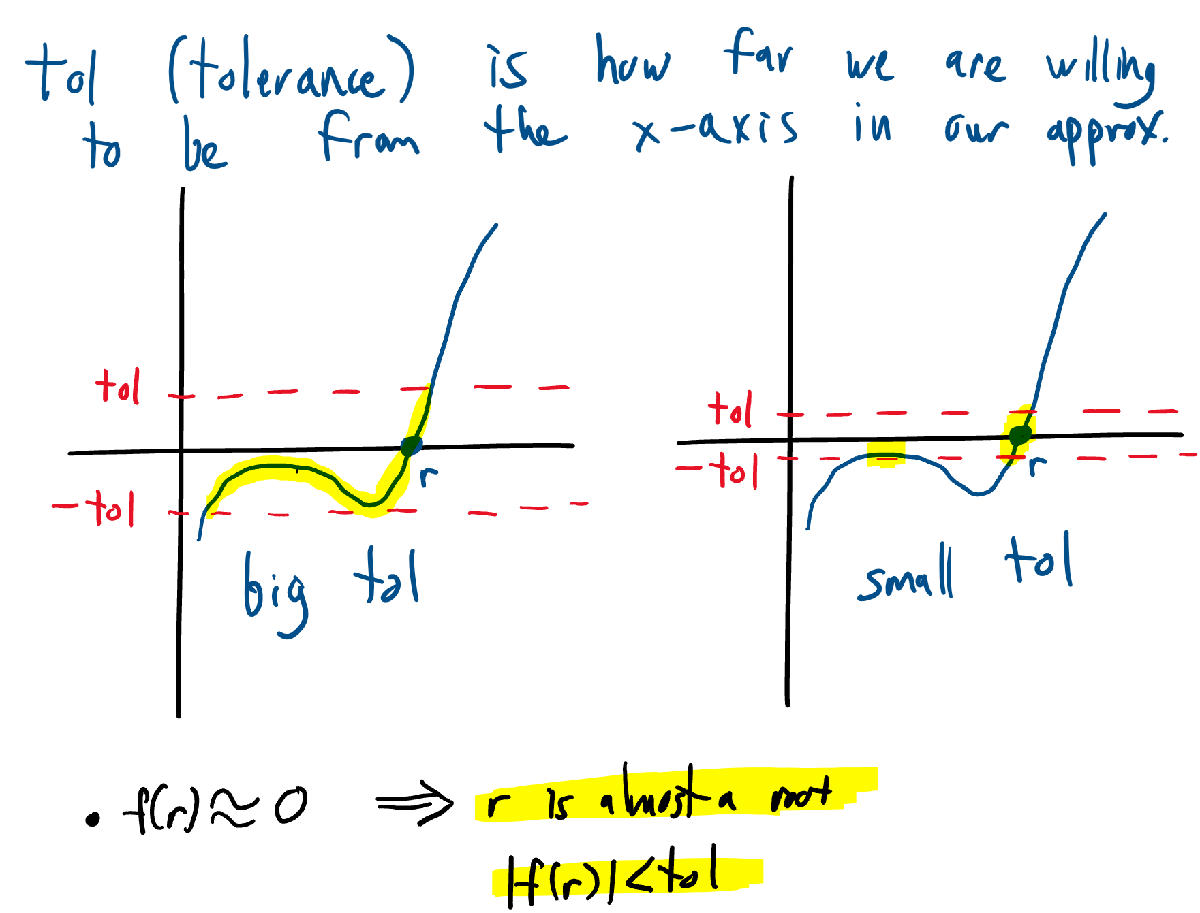 tol (tolerance) is how far we are willing
to be from the x-axis in our approx.
tol
-tol
r
big tol
tol
-tol
r
small tol
• f(r) ≈ 0 ⇒ r is almost a root
|f(r)| < tol